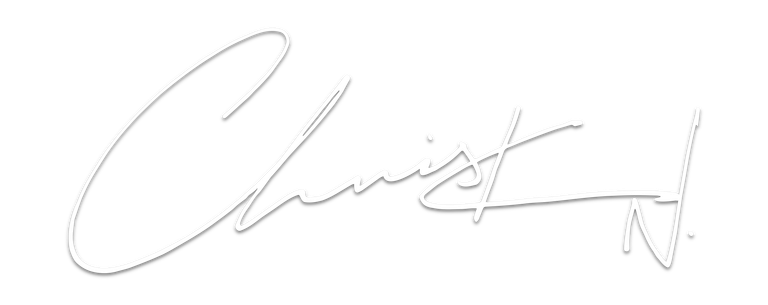 Christ N.